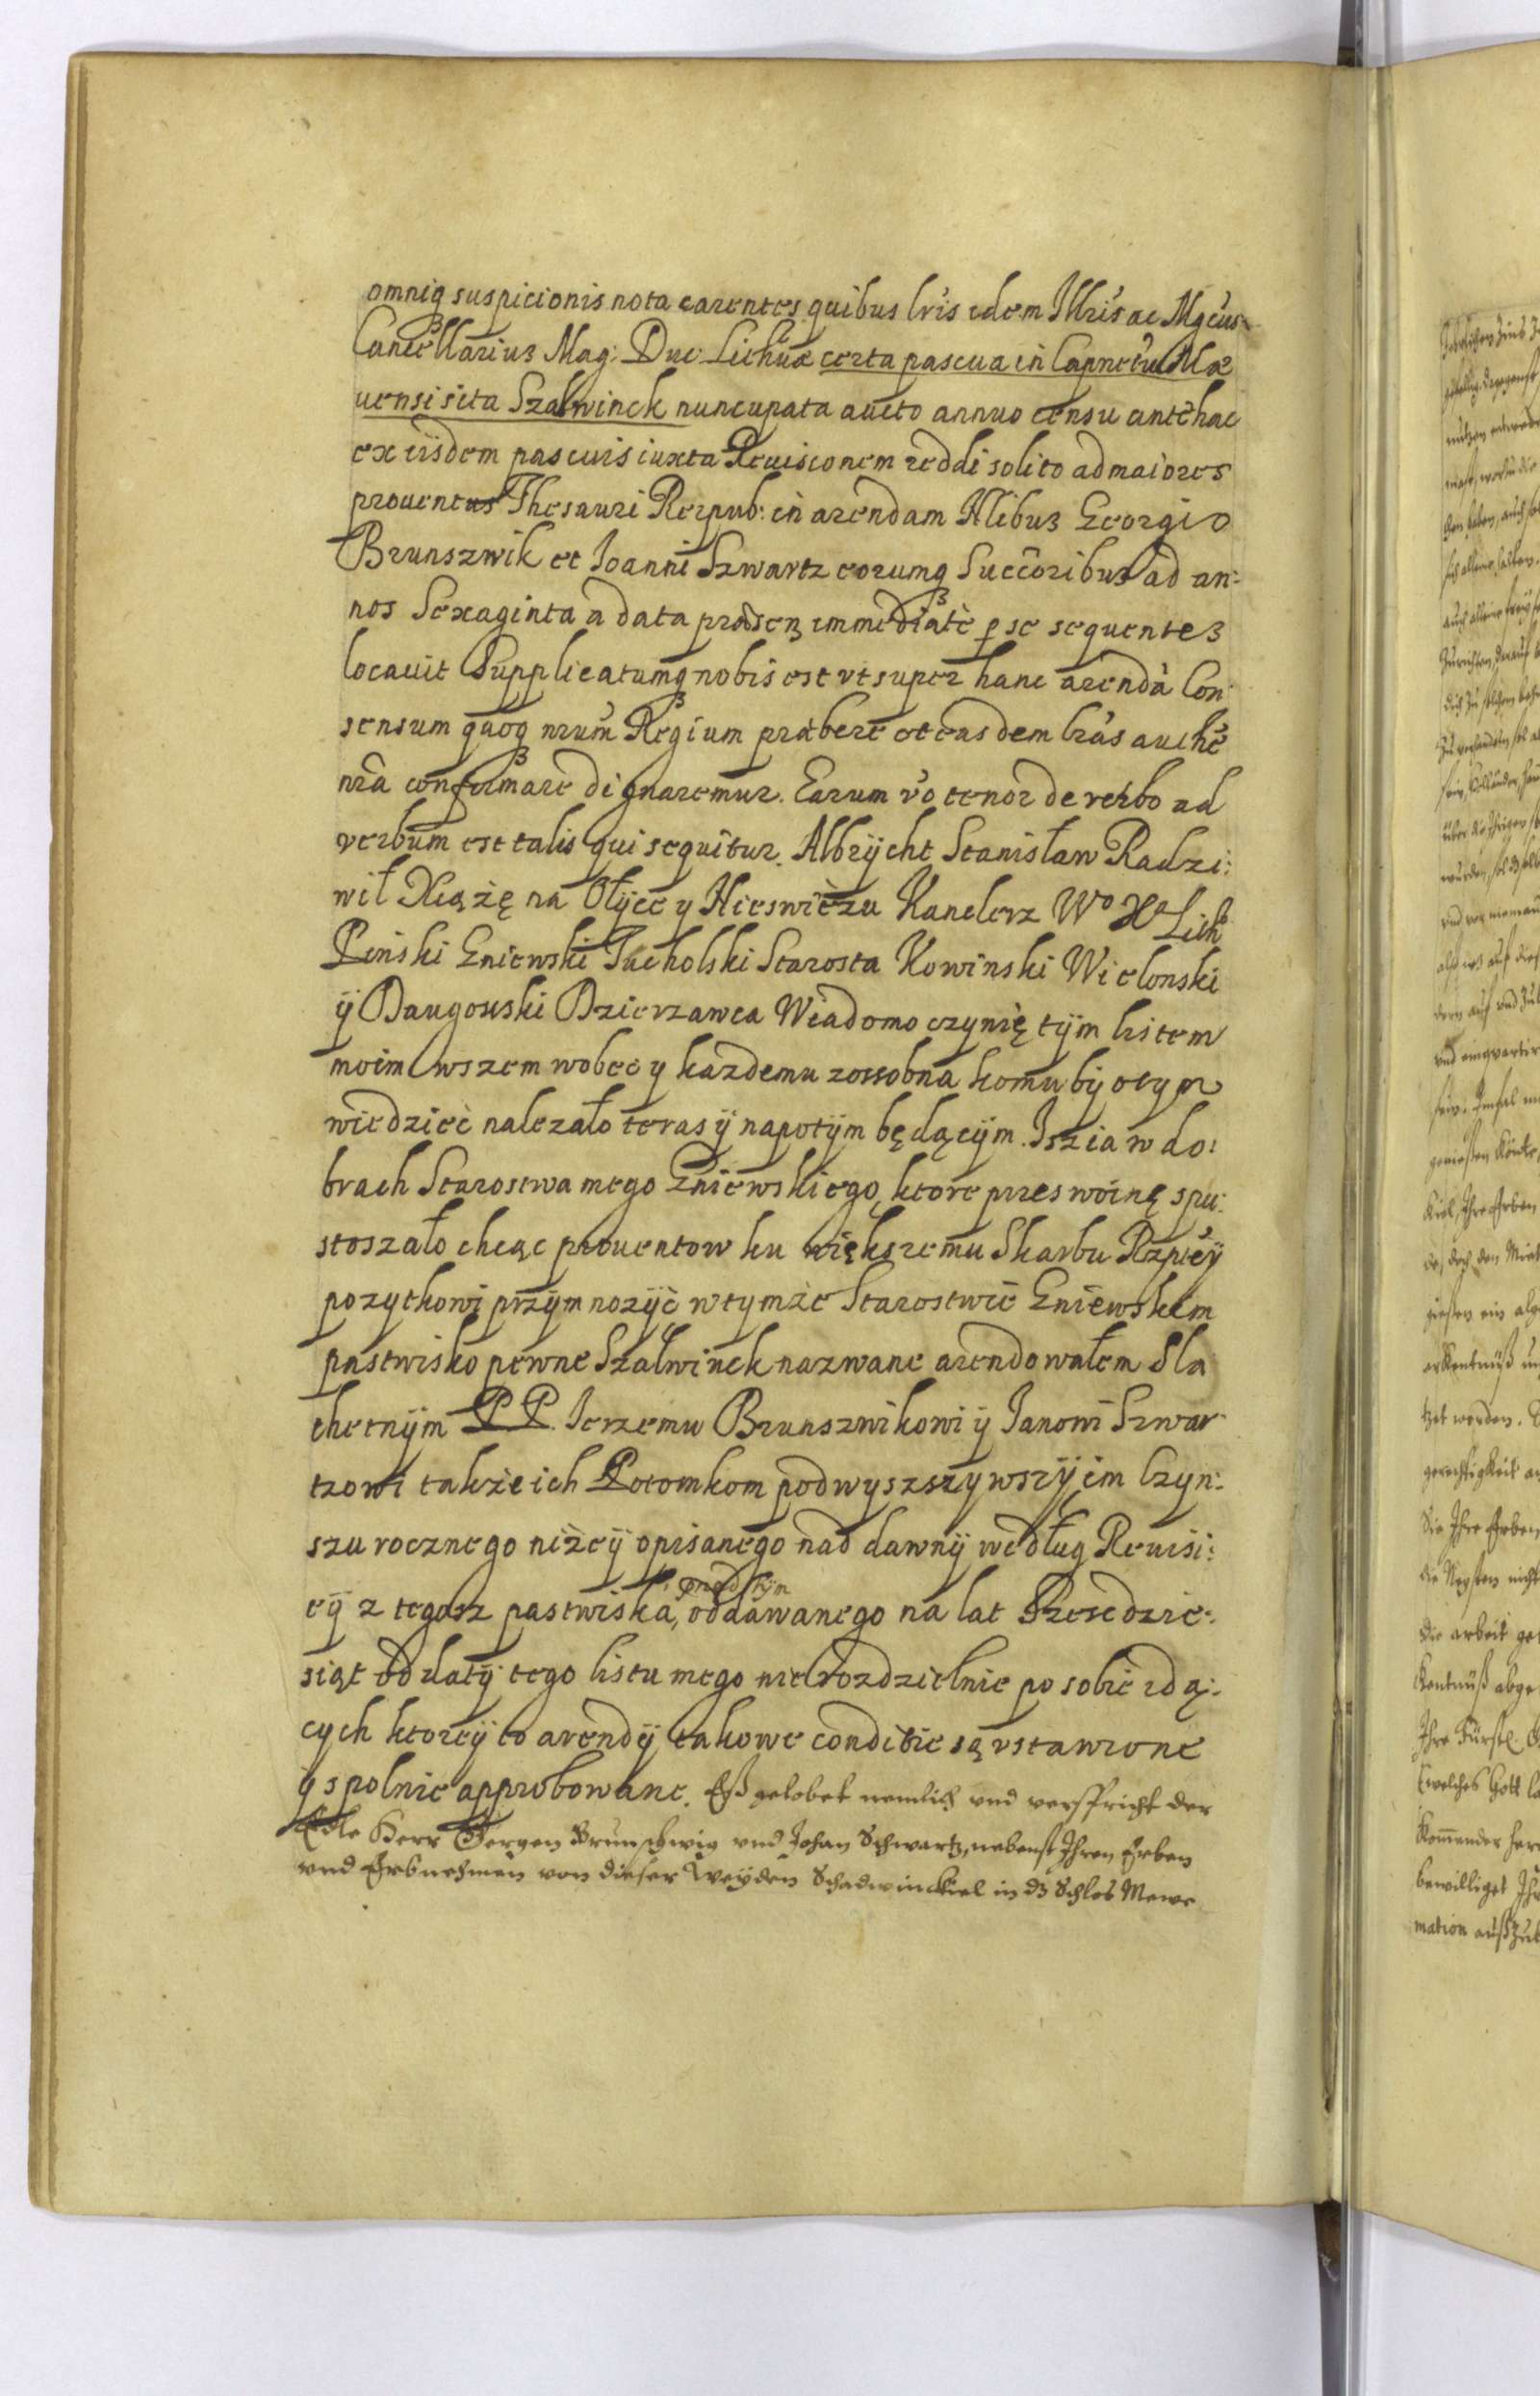 omniq suspicionis nota carentes quibus lris idem Illris ac Mgcus
Cancellarius Mag: Duc: Lithuae certa pascua in Capnetu Mæ
uensi sita Szalwinck nuncupata aucto annuo censu antehac
ex iisdem pascuis iuxta Reuisionem reddi solito ad maiores
prouentus Thesauri Reipub: in arendam Nlibus Georgio
Brunszwik et Joanni Szwartz eorumq Succoribus ad an:
nos Sexaginta a data præsen immediatè p se sequentes
locauit Supplicatumq nobis est vt super hanc arendã Con
sensum quoq nrum Regium præbere et easdem lras authẽ
nrã confirmare dignaremur. Earum vo tenor de verbo ad
verbum est talis qui sequitur. Albrÿcht Stanisław Radzi:
wił Xiążę na Ołÿce y Nieswieżu Kanclerz Wo Xa Lith
Pinski Gniewski Tucholski Starosta Kowinski Wielonski
ÿ Daugouski Dzierzawca Wiadomo czynię tÿm listem
moim wszem wobec y kazdemu zossobna komu bÿ o tym
wiedzieć nalezało teras ÿ napotÿm będącÿm. Isz ia w do:
brach Starostwa mego Gniewskiego, ktore przes woinę spu:
stoszało chcąc prouentow ku większemu Skarbu Rzpteÿ
pozytkowi przÿmnozÿć w tymże Starostwie Gniewskim
pastwisko pewne Szalwinck nazwane arendowałem Sla
chetnÿm PP. Jerzemu Brunszwikowi ÿ Janowi Szwar
tzowi takze ich Potomkom podwyszszywszÿ im Czyn:
szu rocznego niżeÿ opisanego nad dawnÿ według Reuisi:
eÿ z tegosz pastwiska, oddawanego na lat Szescdzie:
siąt od datÿ tego listu mego nierozdzielnie po sobie idą:
cych ktoreÿ to arendÿ takowe conditie są vstawione
ÿ spolnie approbowane. Eß gelobet nemlich vnd verspricht der
Edle Herr Gergen Brunschwig vnd Johan Schwartz, nebenst Ihren Erben
vnd Erbnehmen von dieser Weÿden Schadwinckel in dz Schlos Mewe